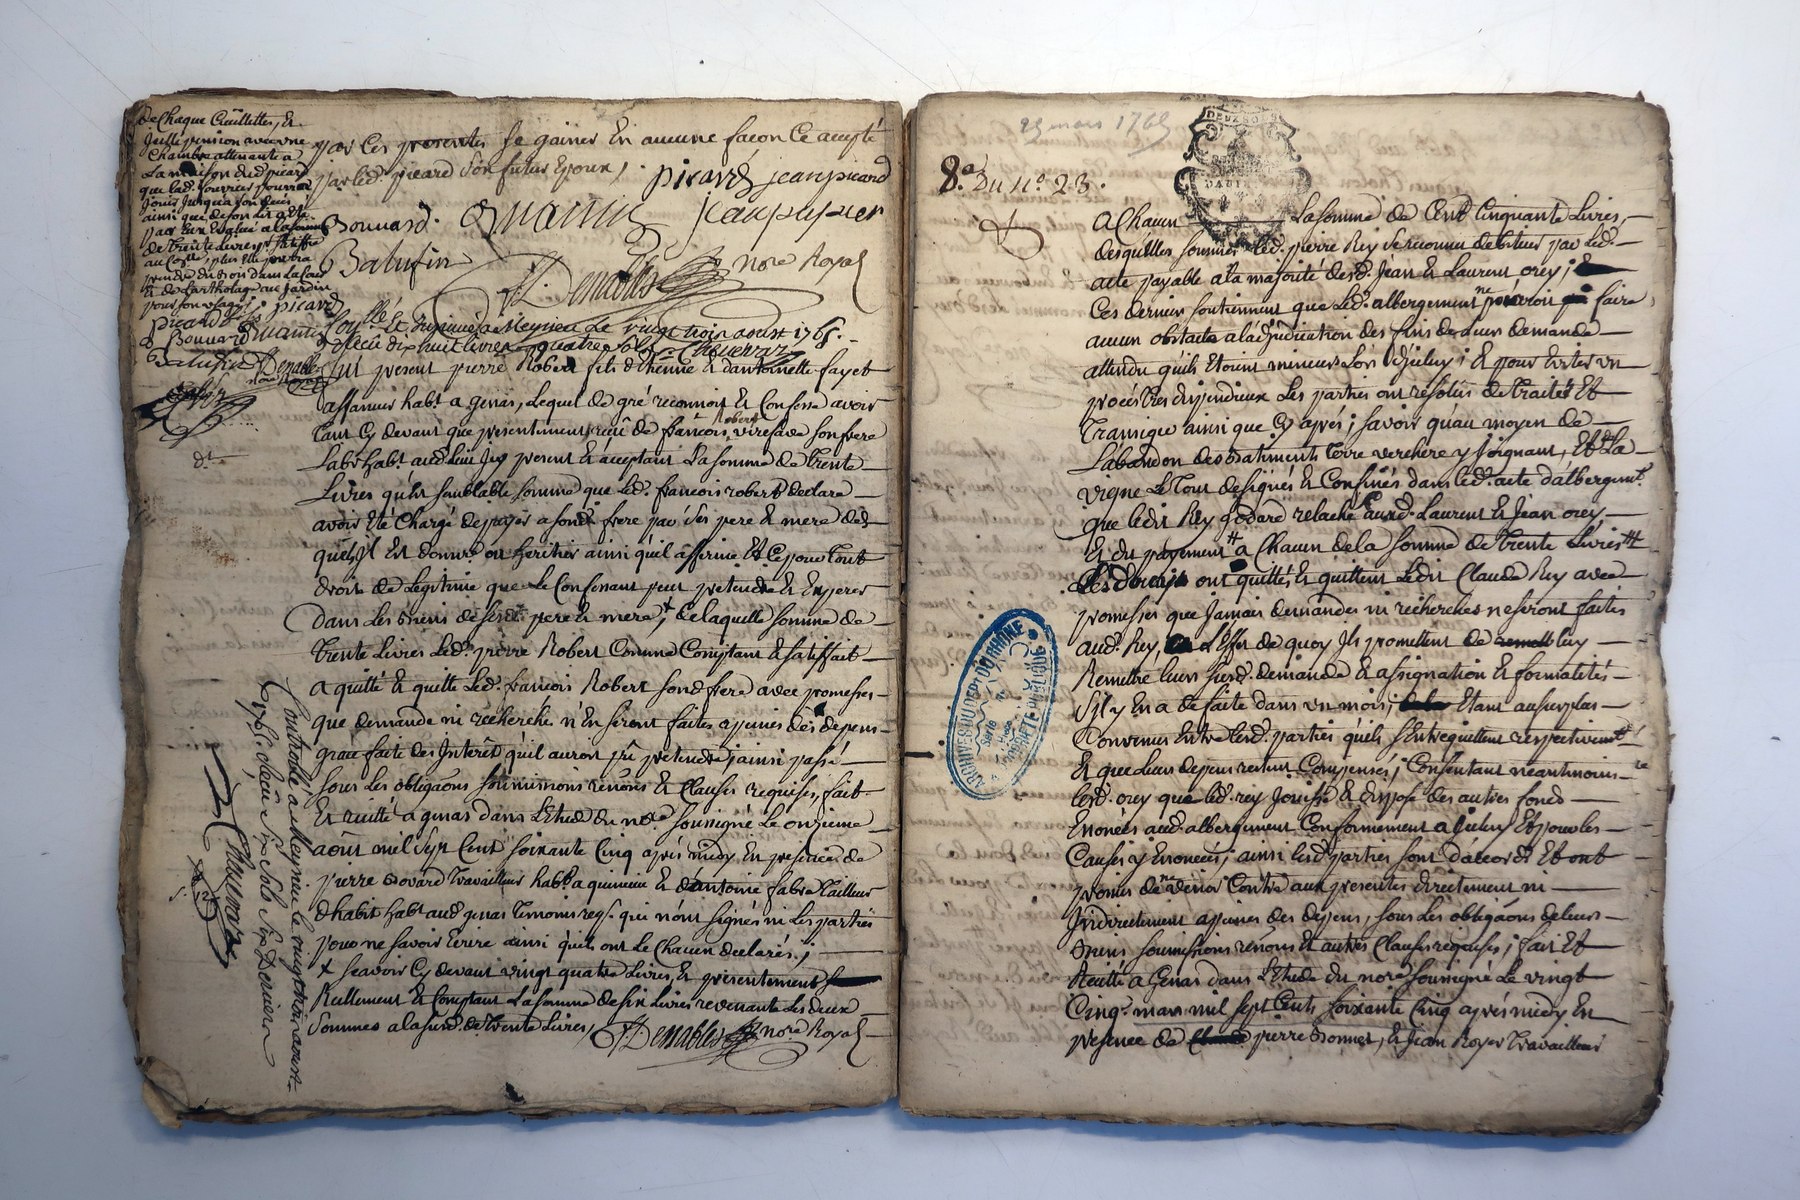 de Chaque Cuillettes, Et
chambre attenante a
La maison dud. picard
que lad. fourrier pourra
Jouir Jusqua son deces
ainsi que de son lit
de trente Livres
prendre du bois dans la cour
pour son usage picard
par les presentes se gainer En aucune facon Ce accepté
par led. picard son futur Epoux,
picard jean picard
Bonnard
jean pupier
Balufin
Demables nore Royal
picard fils
Bonnard
Balufin Demables
nore Royal
Conllé Et Insinué a Meyrieu Le vingt trois aoust 1765.
Reçu dix huit livres quatre sols Cheuerraz
Fut present pierre Robert fils dEtienne Et dantoinette fayet
affaneur habt a genas, Lequel de gré reconnoit Et Confesse avoir
Tant Cy devant que presentement reçu de francois Robert son frere
Labr habt aud. lieu Jcy present Et aceptant La somme de Trente
Livres qu'est semblable somme que led. francois robert declare
avoir Eté Chargé de payer a sond. frere par ses pere Et mere desd
quels Jl Est donnre ou heritier ainsi qu'il affirme Et Ce pour tout
droit de Legitime que Le Confessant peut pretendre Et Esperer
dans Les Biens de sesd. pere Et mere, + de laquelle somme de
Trente Livres led. pierre Robert Comme Comptant Et satisfait
a quitté Et quitte Led. francois Robert sond frere avec promesses
que demande ni recherche n'En seront faites a peines des depens
grace faite des Interêt qu'il auront pû pretendre, ainsi passé
sous Les obligãons soumissions renõns Et Clauses requises, fait
Et recitté a genas dans L'Etude du nore soussigné Le onzieme
aout mil sept Cent soixante Cinq après midy En presence de
pierre Bovard Travailleur habt a quincieu Et d'antoine fabre Tailleur
d'habit habt aud genas Temoins reqs. qui n'ont signés ni Les parties
pour ne savoir Ecrire ainsi qu'ils ont Le Chacun declarés.;
+ scavoir Cy devant vingt quatre Livres Et presentement
Reellement Et Comptant La somme de six Livres revenante Les deux
sommes a la susd. de Trente Livres / Demables nore Royal
Controllé a Meyrieu le vingt trois aoust
1765. Reçu six sols six deniers
Cheuerraz
25 mars 1765
DEUX SOLS
DAUPHINE
8.e Du No. 23.
a Chacun La somme de Cent Cinquante Livres,
desquelles sommes led. pierre Rey Se reconnu debiteur par led.
acte payable a la majorité desd. Jean Et Laurent orey; Et
Ces dernier soutiennent que Led. albergement ne pouvoit faire
aucun obstacle a l'adjudication des fins de leur demande
attendu qu'ils Etoient mineurs Lors d'jceluy; Et pour Eviter un
procés Tres dispendieux Les parties ont résolus de traiter Et
Transiger ainsi que Cy aprés; savoir qu'au moyen de
L'abandon des Batiments Terre verchere y joignant, Et La
vigne Le Tout designés Et Confinés dans led. acte d'albergemt.
que ledit Rey godard relache auxd. Laurent Et Jean orey
Et du payement a Chacun de la somme de trente Livres
Lesd. orey ont quittés Et quittent Ledit Claude Rey avec
promesses que Jamais demandes ni recherches ne seront faites
aud. Rey, a L'Effet de quoy Jls promettent de luy
Remettre Leurs susd. demande Et assignation Et formalités
S'jl y En a de faite dans un mois; Etant au surplus
Convenus Entre lesd. parties qu'elles S'Entrequittent respectivemt.
Et que Leurs depens restent Compensés; Consentant néantmoins
lesd. orey que led. rey Jouisse Et dispose des autres fond
Enoncés aud. albergement Conformement a Jceluy Et pour les
Causes y Enoncées; ainsi lesd. parties sont d'accord Et ont
promis de ne venir Contre aux presentes directement ni
Jndirectement a peines des depens, sous Les obligãons de leurs
Biens soumissions renõns Et autres Clauses requises; fait Et
Recitté a Genas dans L'Etude du nore soussigné Le vingt
Cinq. mars mil sept Cents soixante Cinq aprés midy En
presence de pierre Bonnet, Et Jean Royer Travailleurs
ARCHIVES DU DEPT DU RHONE
Serie
PROPRIÉTÉ PUBLIQUE